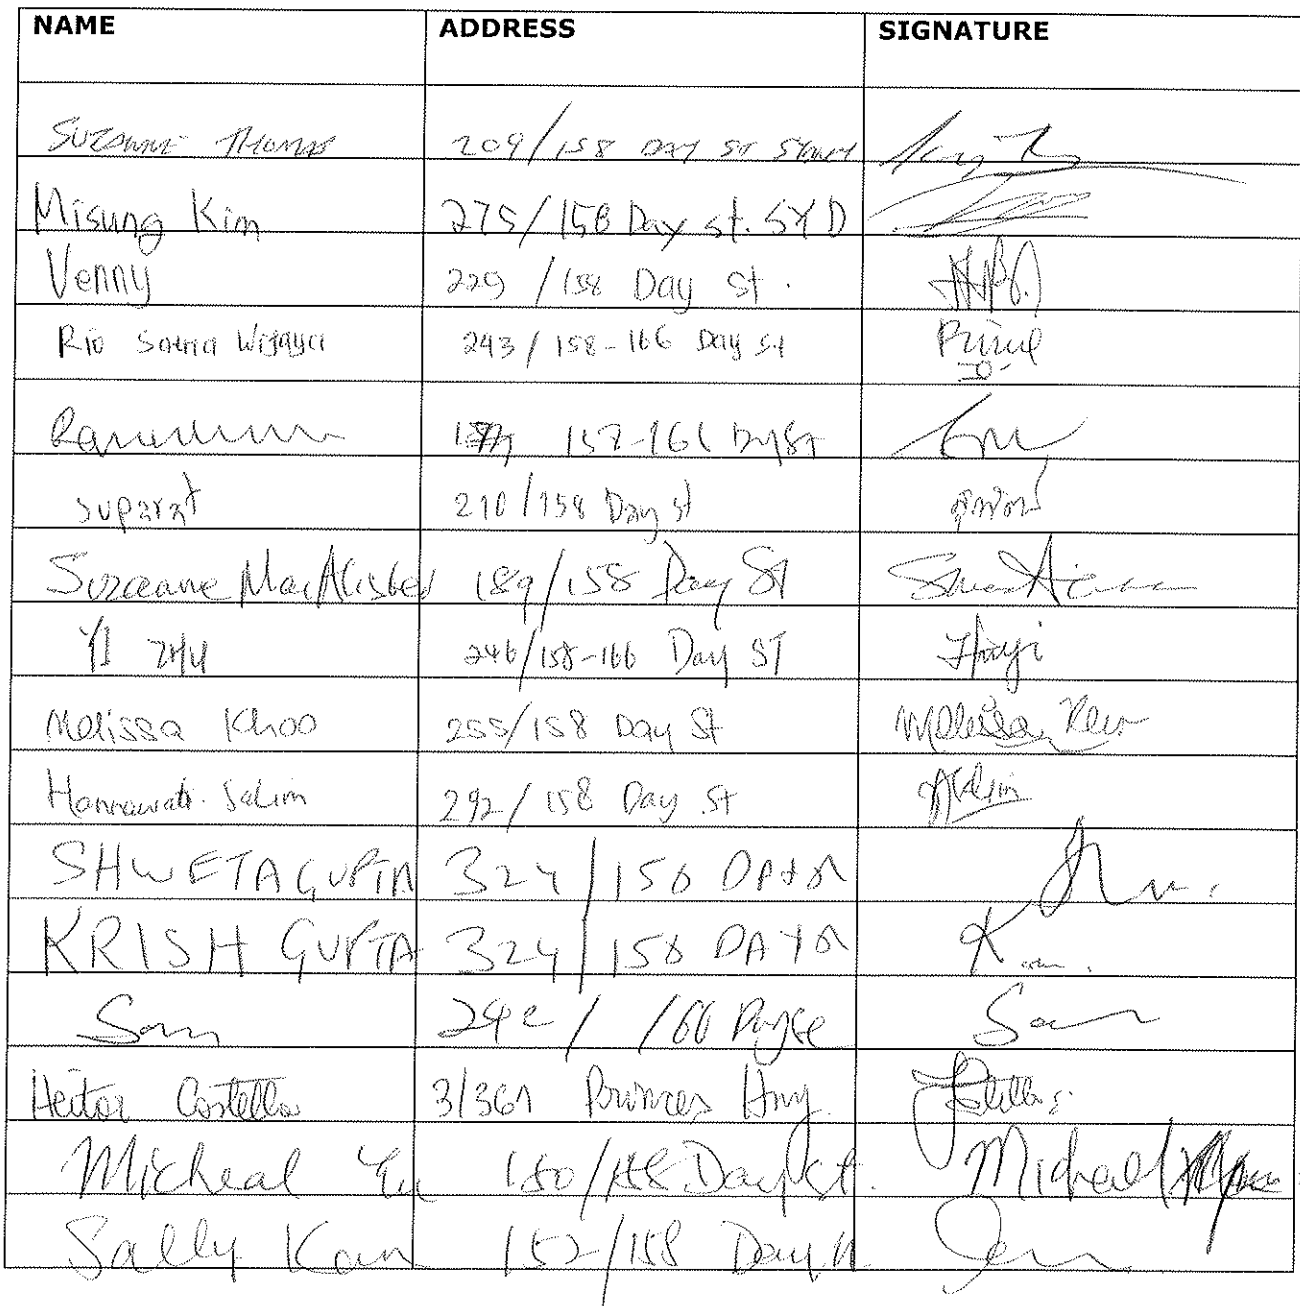 NAME ADDRESS SIGNATURE
SUZANNE THOMAS 209/158 DAY ST SYDNEY
Misung Kim 275/158 Day st. SYD
Venny 229 /158 Day St.
Rio Satria Wijaya 243/158-166 Day St
Day St
suparat 210/158 Day st
Suzanne MacAlister 189/158 Day St
YI ZHU 246/158-166 Day ST
Melissa Khoo 255/158 Day St Melissa
Hennawati Salim 292/158 Day St
SHWETA GUPTA 324/158 DAY St
KRISH GUPTA 324/158 DAY St
Sam 242/ 166 Day St Sam
Hector Costella 3/361 Princes Hwy.
Micheal Yu 180/158 Day St. Micheal
Sally Kan 152/158 Day St